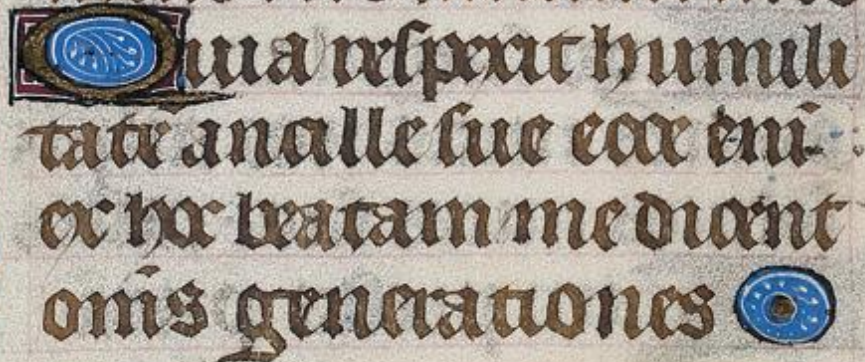 Quia respexit humili
tatē ancille sue ecce eni̅
ex hoc beatam me dicent
om̅s generationes